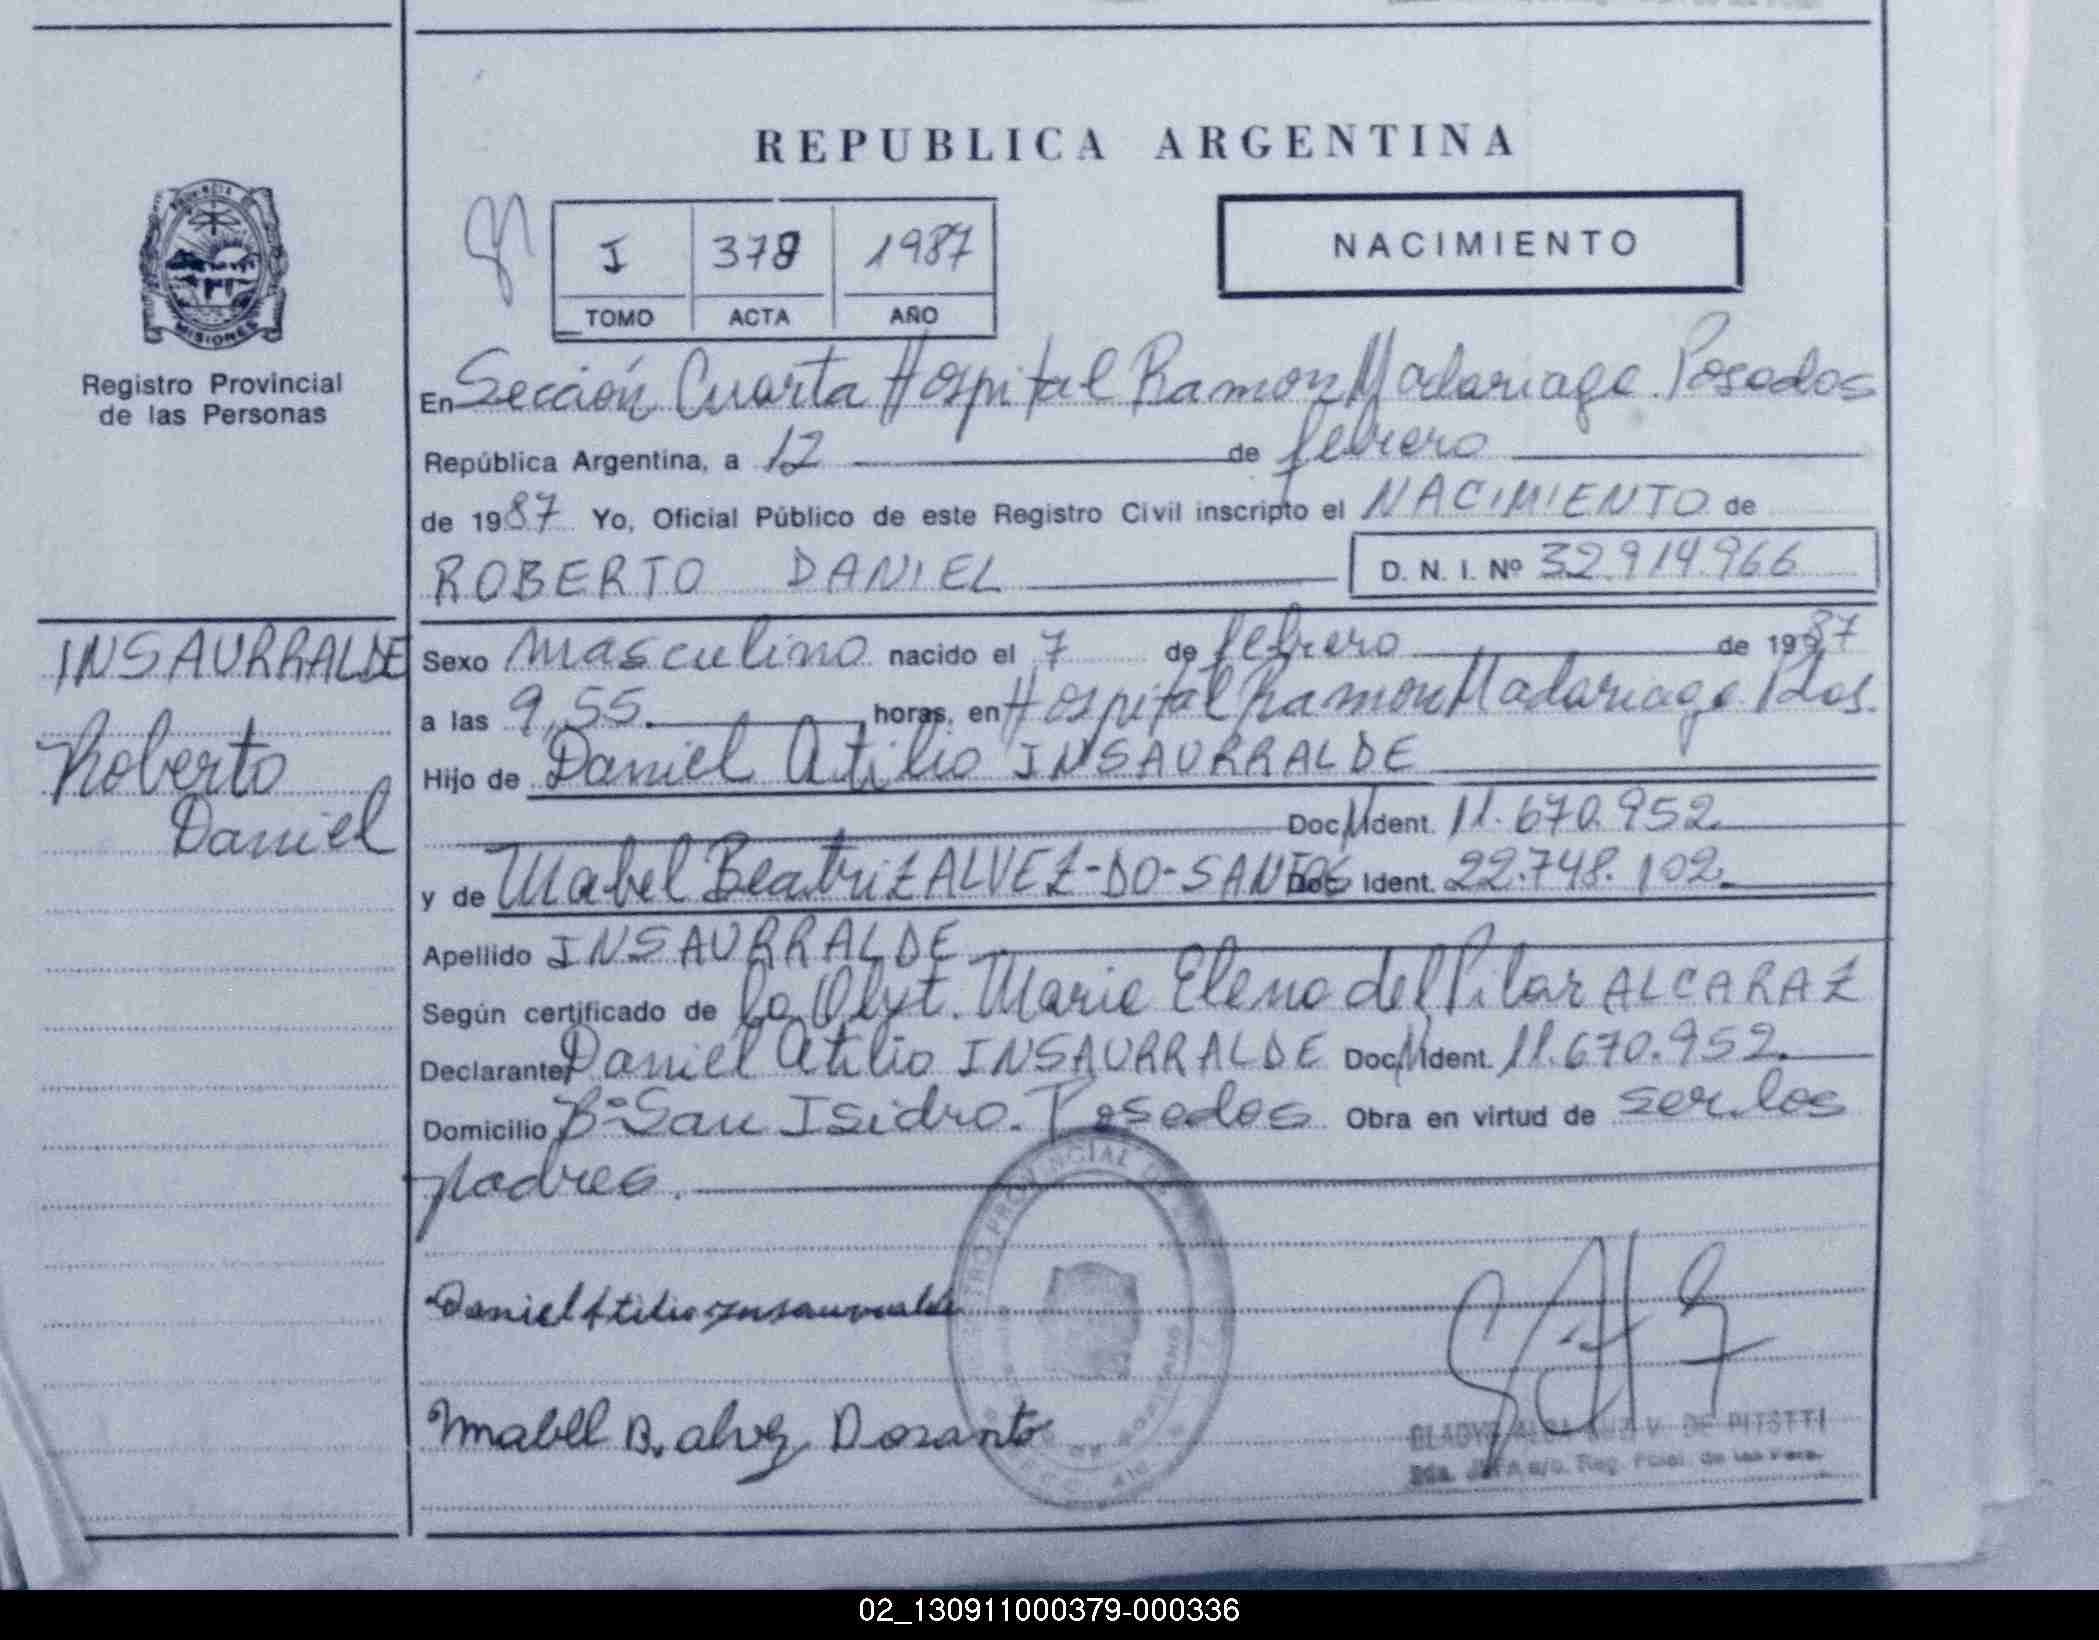 REPUBLICA ARGENTINA
PROVINCIA DE
MISIONES
Registro Provincial
de las Personas
I 378 1987
TOMO ACTA AÑO
NACIMIENTO
En Sección Cuarta Hospital Ramon Madariaga. Posadas
República Argentina, a 12 de febrero
de 1987 Yo, Oficial Público de este Registro Civil inscripto el NACIMIENTO de
ROBERTO DANIEL D. N. I. Nº 32.914.966
INSAURRALDE
Roberto
Daniel
Sexo masculino nacido el 7 de febrero de 1987
a las 9,55. horas, en Hospital Ramon Madariaga. Pdas.
Hijo de Daniel Atilio INSAURRALDE
Doc. M Ident. 11.670.952.
y de Mabel Beatriz ALVEZ-DO-SANTOS Doc. Ident. 22.748.102.
Apellido INSAURRALDE
Según certificado de la Obst. Maria Elena del Pilar ALCARAZ
Declarante Daniel Atilio INSAURRALDE Doc. M Ident. 11.670.952.
Domicilio Bº San Isidro. Posadas Obra en virtud de ser los
padres.
Daniel Atilio Insaurralde
Mabel B. alvez Dosanto
GLADYS V. DE PITOTTI
02_130911000379-000336